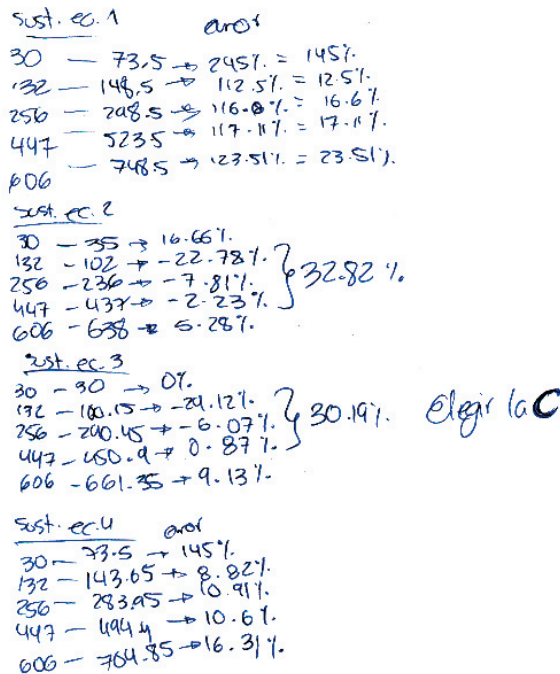 sust. ec. 1 error
30 — 73.5 → 245%. = 145%.
132 — 148.5 → 112.5%. = 12.5%.
256 — 298.5 → 116.6%. = 16.6%
447 5235 → 117.11%. = 17.11%.
606 — 748.5 → 123.51%. = 23.51%.
sust. ec. 2
30 — 35 → 16.66%.
132 — 102 → -22.78%.
256 — 236 → -7.81%. } 32.82%.
447 — 437 → -2.23%.
606 - 638 → 5.28%.
sust. ec. 3
30 - 30 → 0%.
132 — 100.15 → -24.12%.
256 — 240.45 → -6.07%. } 30.19%. Elegir la C
447 — 450.9 → 0.87%.
606 - 661.35 → 9.13%.
sust. ec. 4 error
30 — 73.5 → 145%.
132 — 143.65 → 8.82%.
256 — 283.95 → 10.91%.
447 — 494.4 → 10.6%.
606 — 704.85 → 16.31%.